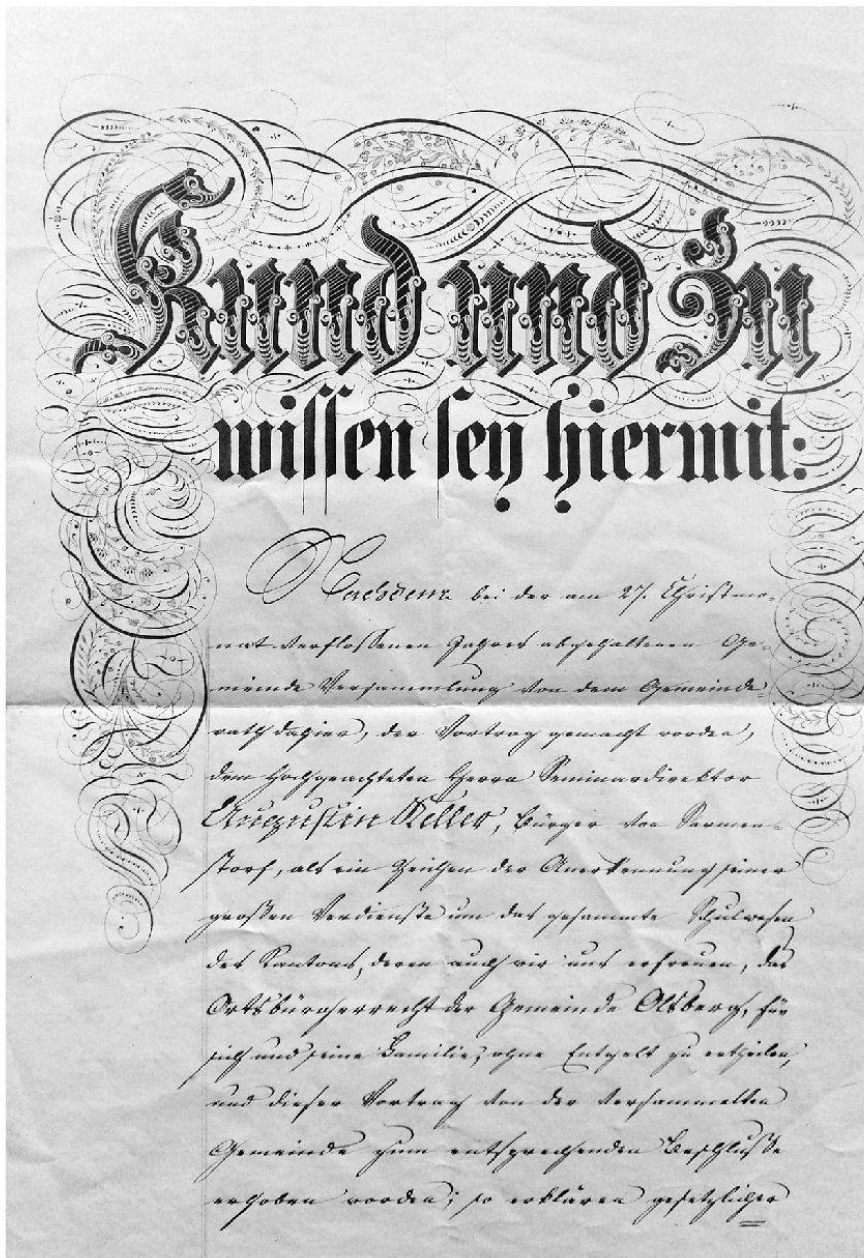 Kund und Zu
wissen sey hiermit:
Nachdem bei der am 27. Christmo-
nat verflossenen Jahres abgehaltenen Ge-
meinde Versammlung von dem Gemeinde-
rath dahier, der Vortrag gemacht worden,
dem Hochgeachteten Herrn Seminardirektor
Augustin Keller, Bürger von Sarmen-
storf, als ein Zeichen der Anerkennung seiner
großen Verdienste um das gesammte Schulwesen
des Kantons, deren auch wir uns erfreuen, das
Ortsbürgerrecht der Gemeinde Olsberg, für
sich und seine Familie, ohne Entgelt zu ertheilen,
und dieser Vortrag von der versammelten
Gemeinde zum entsprechenden Beschlusse
erhoben worden; so erklären gesetzlicher